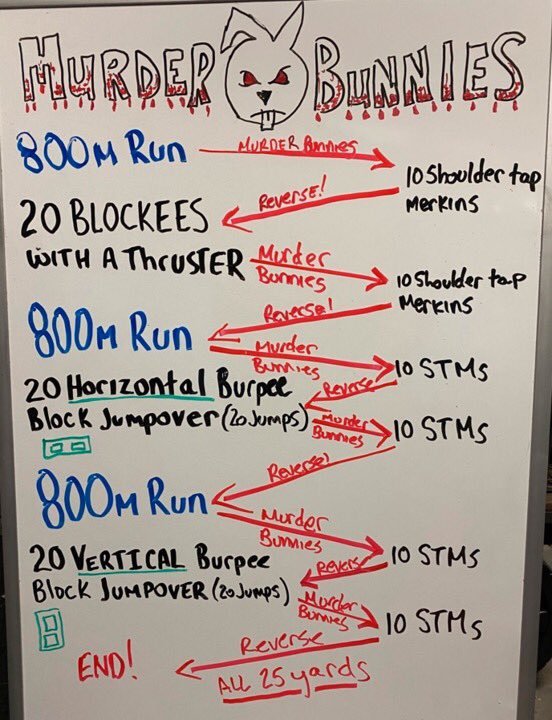 MURDER BUNNIES
800M Run
MURDER Bunnies
10 Shoulder tap
Merkins
Reverse!
20 BLOCKEES
WITH A ThRUSTER
Murder
Bunnies
10 Shoulder tap
Merkins
Reverse!
800M Run
Murder
Bunnies
10 STMs
Reverse
20 Horizontal Burpee
Block Jumpover (20 Jumps)
Murder
Bunnies
10 STMs
Reverse!
800M Run
Murder
Bunnies
10 STMs
Revers
20 VERTICAL Burpee
Block JUMPOVER (20 Jumps)
Murder
Bunnies
10 STMs
Reverse
END!
ALL 25 yards